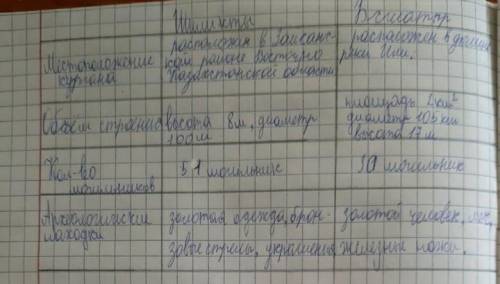 Шиликты Бесшатыр
расположен в Зайсанс- расположен в долине
Местоположение ком районе Восточно реки Или.
кургана Казахстанской области
площадь 2 км²
Объем строения высота 8м, диаметр диаметр 105 км
100м высота 17 м
Кол-во 51 могильник 30 могильник
могильников
Археологические золотая одежда, брон- золотой человек,
находки зовые стрелы, украшения железные ножи.